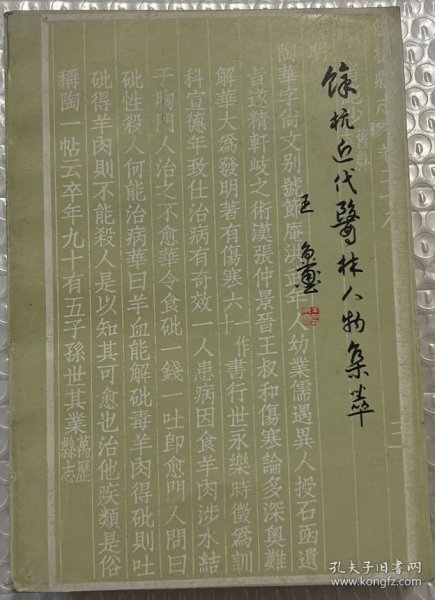 餘杭近代醫林人物集萃
王
陶華字尚文别號節庵洪武年人幼業儒遇異人授石函遺
遂精軒岐之術漢張仲景晉王叔和傷寒論多深奥難
解華大為發明著有傷寒六作書行世永樂時徵為訓
科宣德年致仕治病有奇效一人患病因食羊肉涉水結
于胸門人治之不愈華令食砒一錢一吐即愈門人問曰
砒性殺人何能治病華曰羊血能解砒毒羊肉得砒則吐
砒得羊肉則不能殺人是以知其可愈也治他疾類是俗
稱陶一帖云卒年九十有五子孫世其業萬歷縣志
孔夫子旧书网
www.kongfz.com